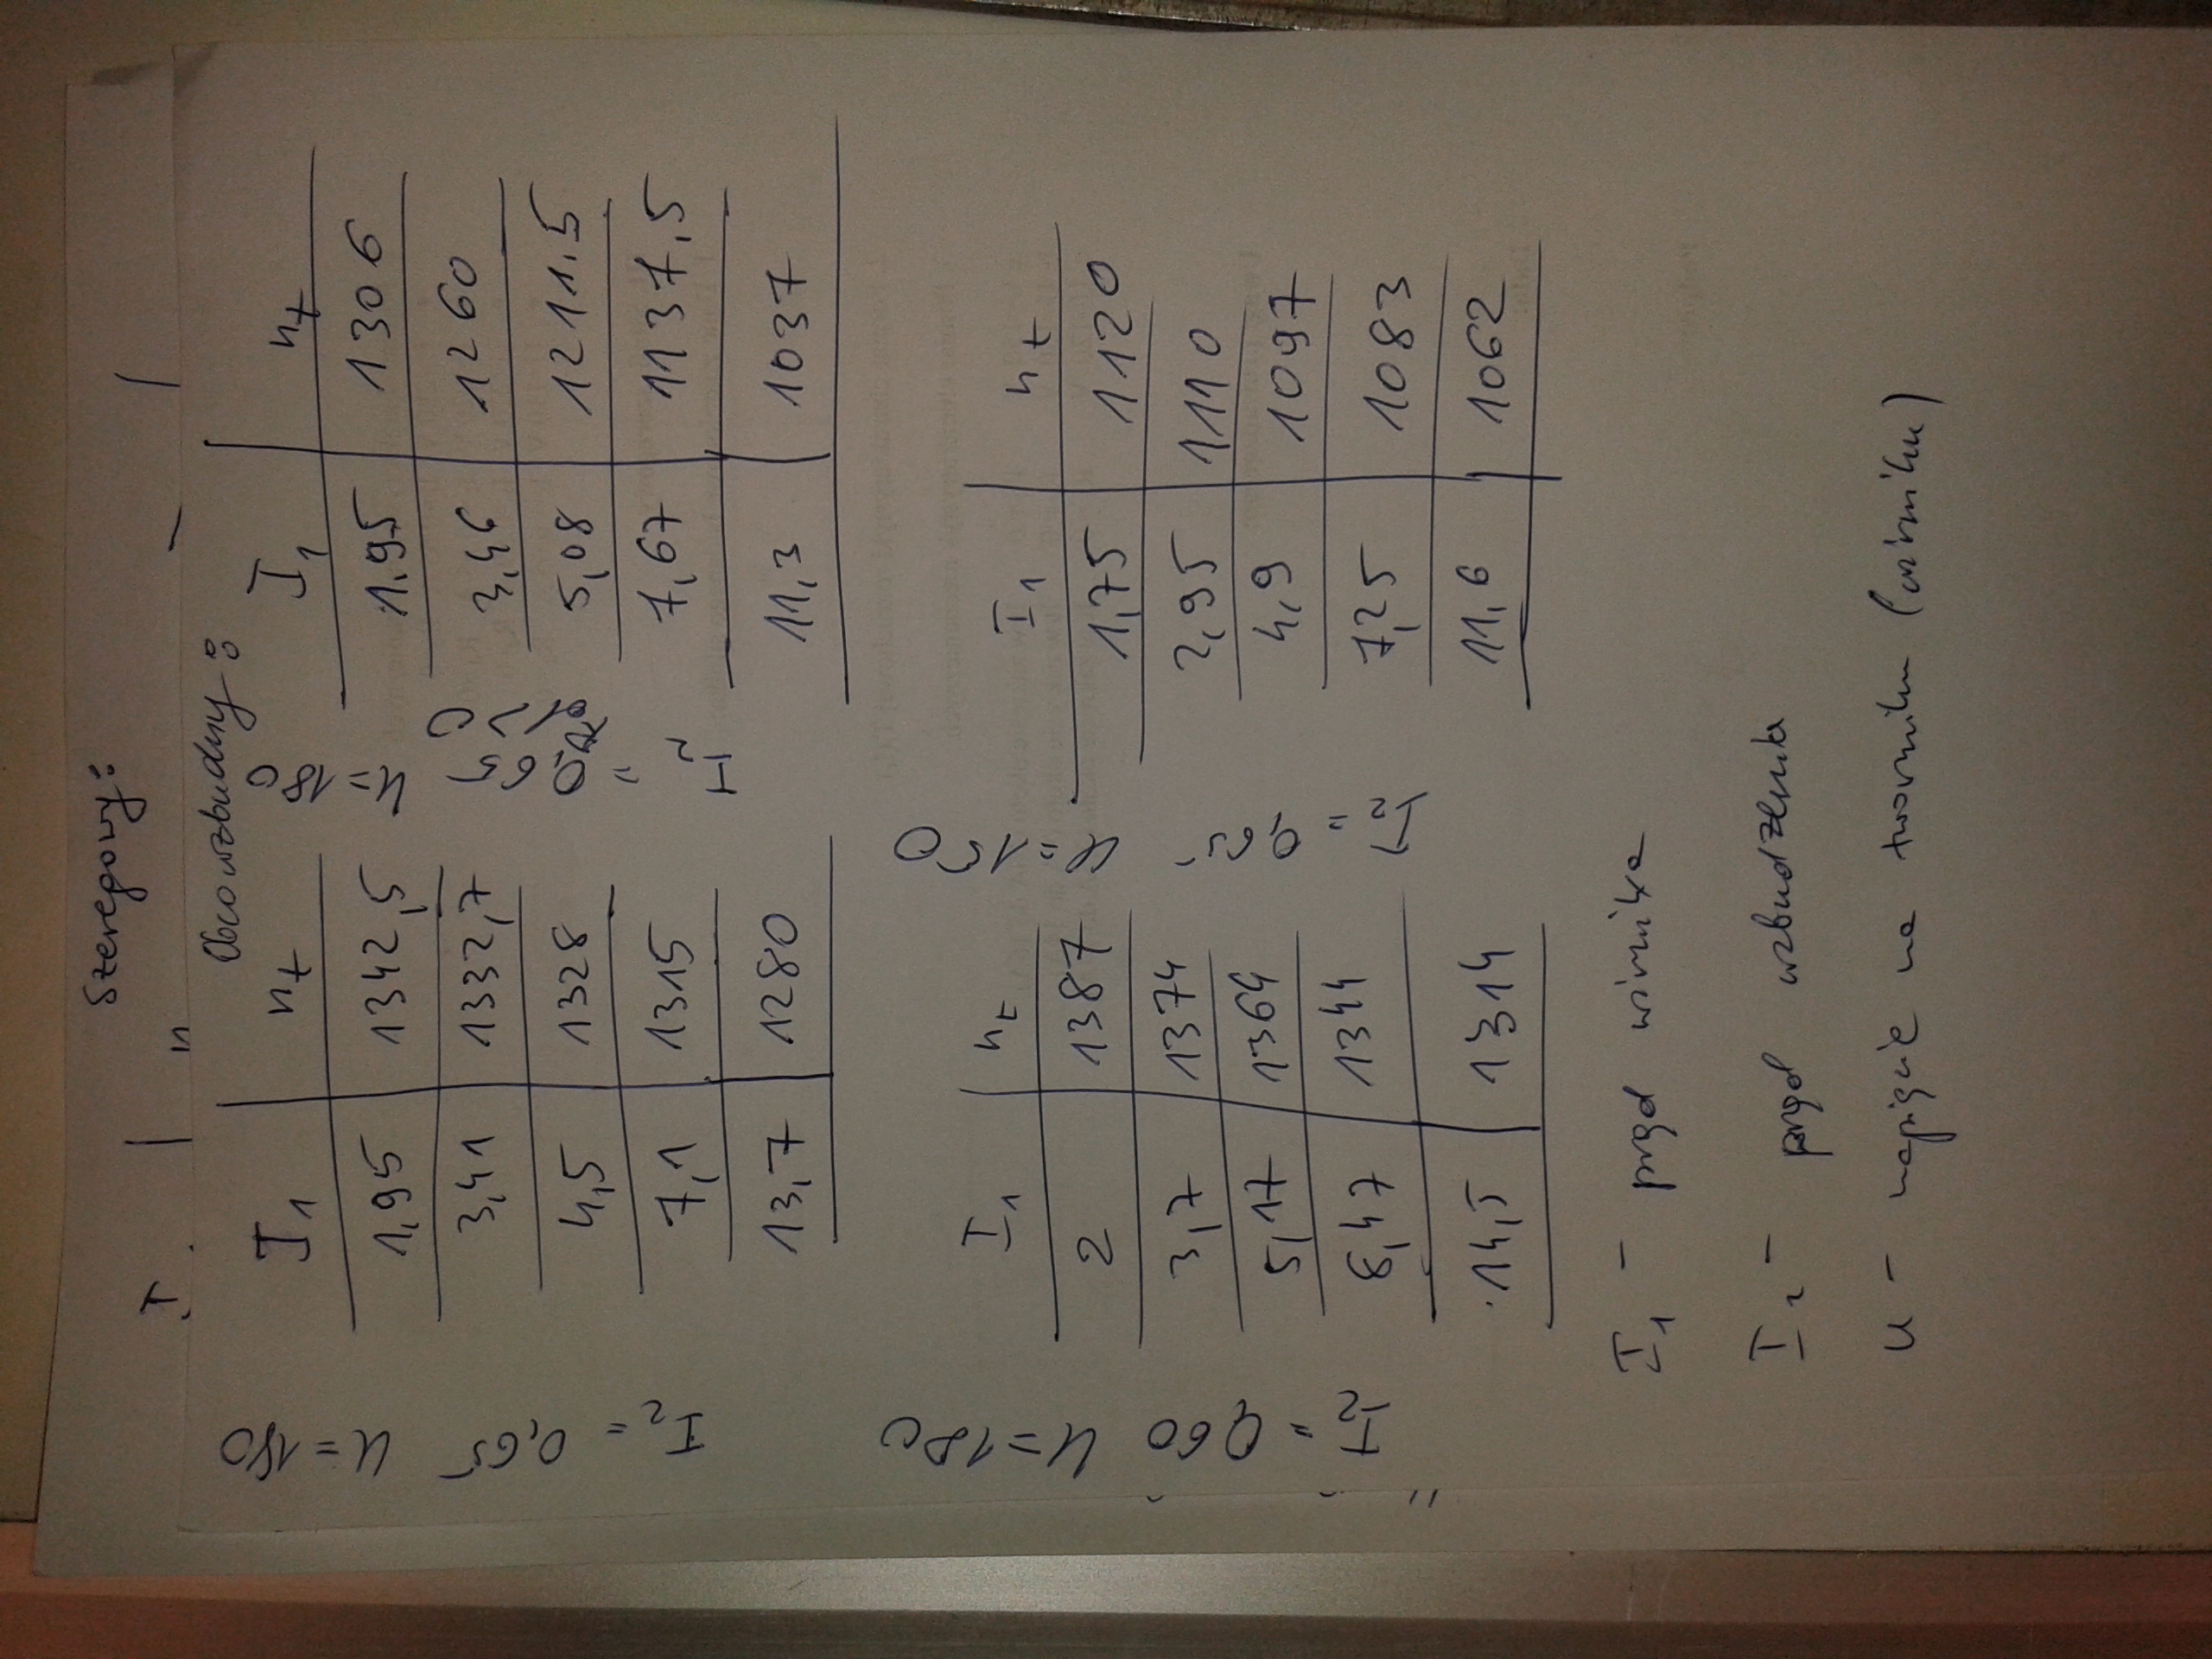 Szeregowy:
I n
Obcowzbudny:
I2 = 0,65 U=180
I1 nt
1,95 1342,5
3,41 1332,7
4,5 1328
7,1 1315
13,7 1280
I2 = 0,65 U=180
Rd>0
I1 nt
1.95 1306
3,46 1260
5,08 1211.5
7,67 1137,5
11,3 1037
I2 = 0,60 U=180
I1 nt
2 1387
3,7 1374
5,17 1364
8,47 1344
14,5 1314
I2 = 0,65 U=150
I1 nt
1,75 1120
2,95 1110
4,9 1097
7,25 1083
11,6 1062
I1 - prąd wirnika
I2 - prąd wzbudzenia
U - napięcie na tworniku (wirniku)